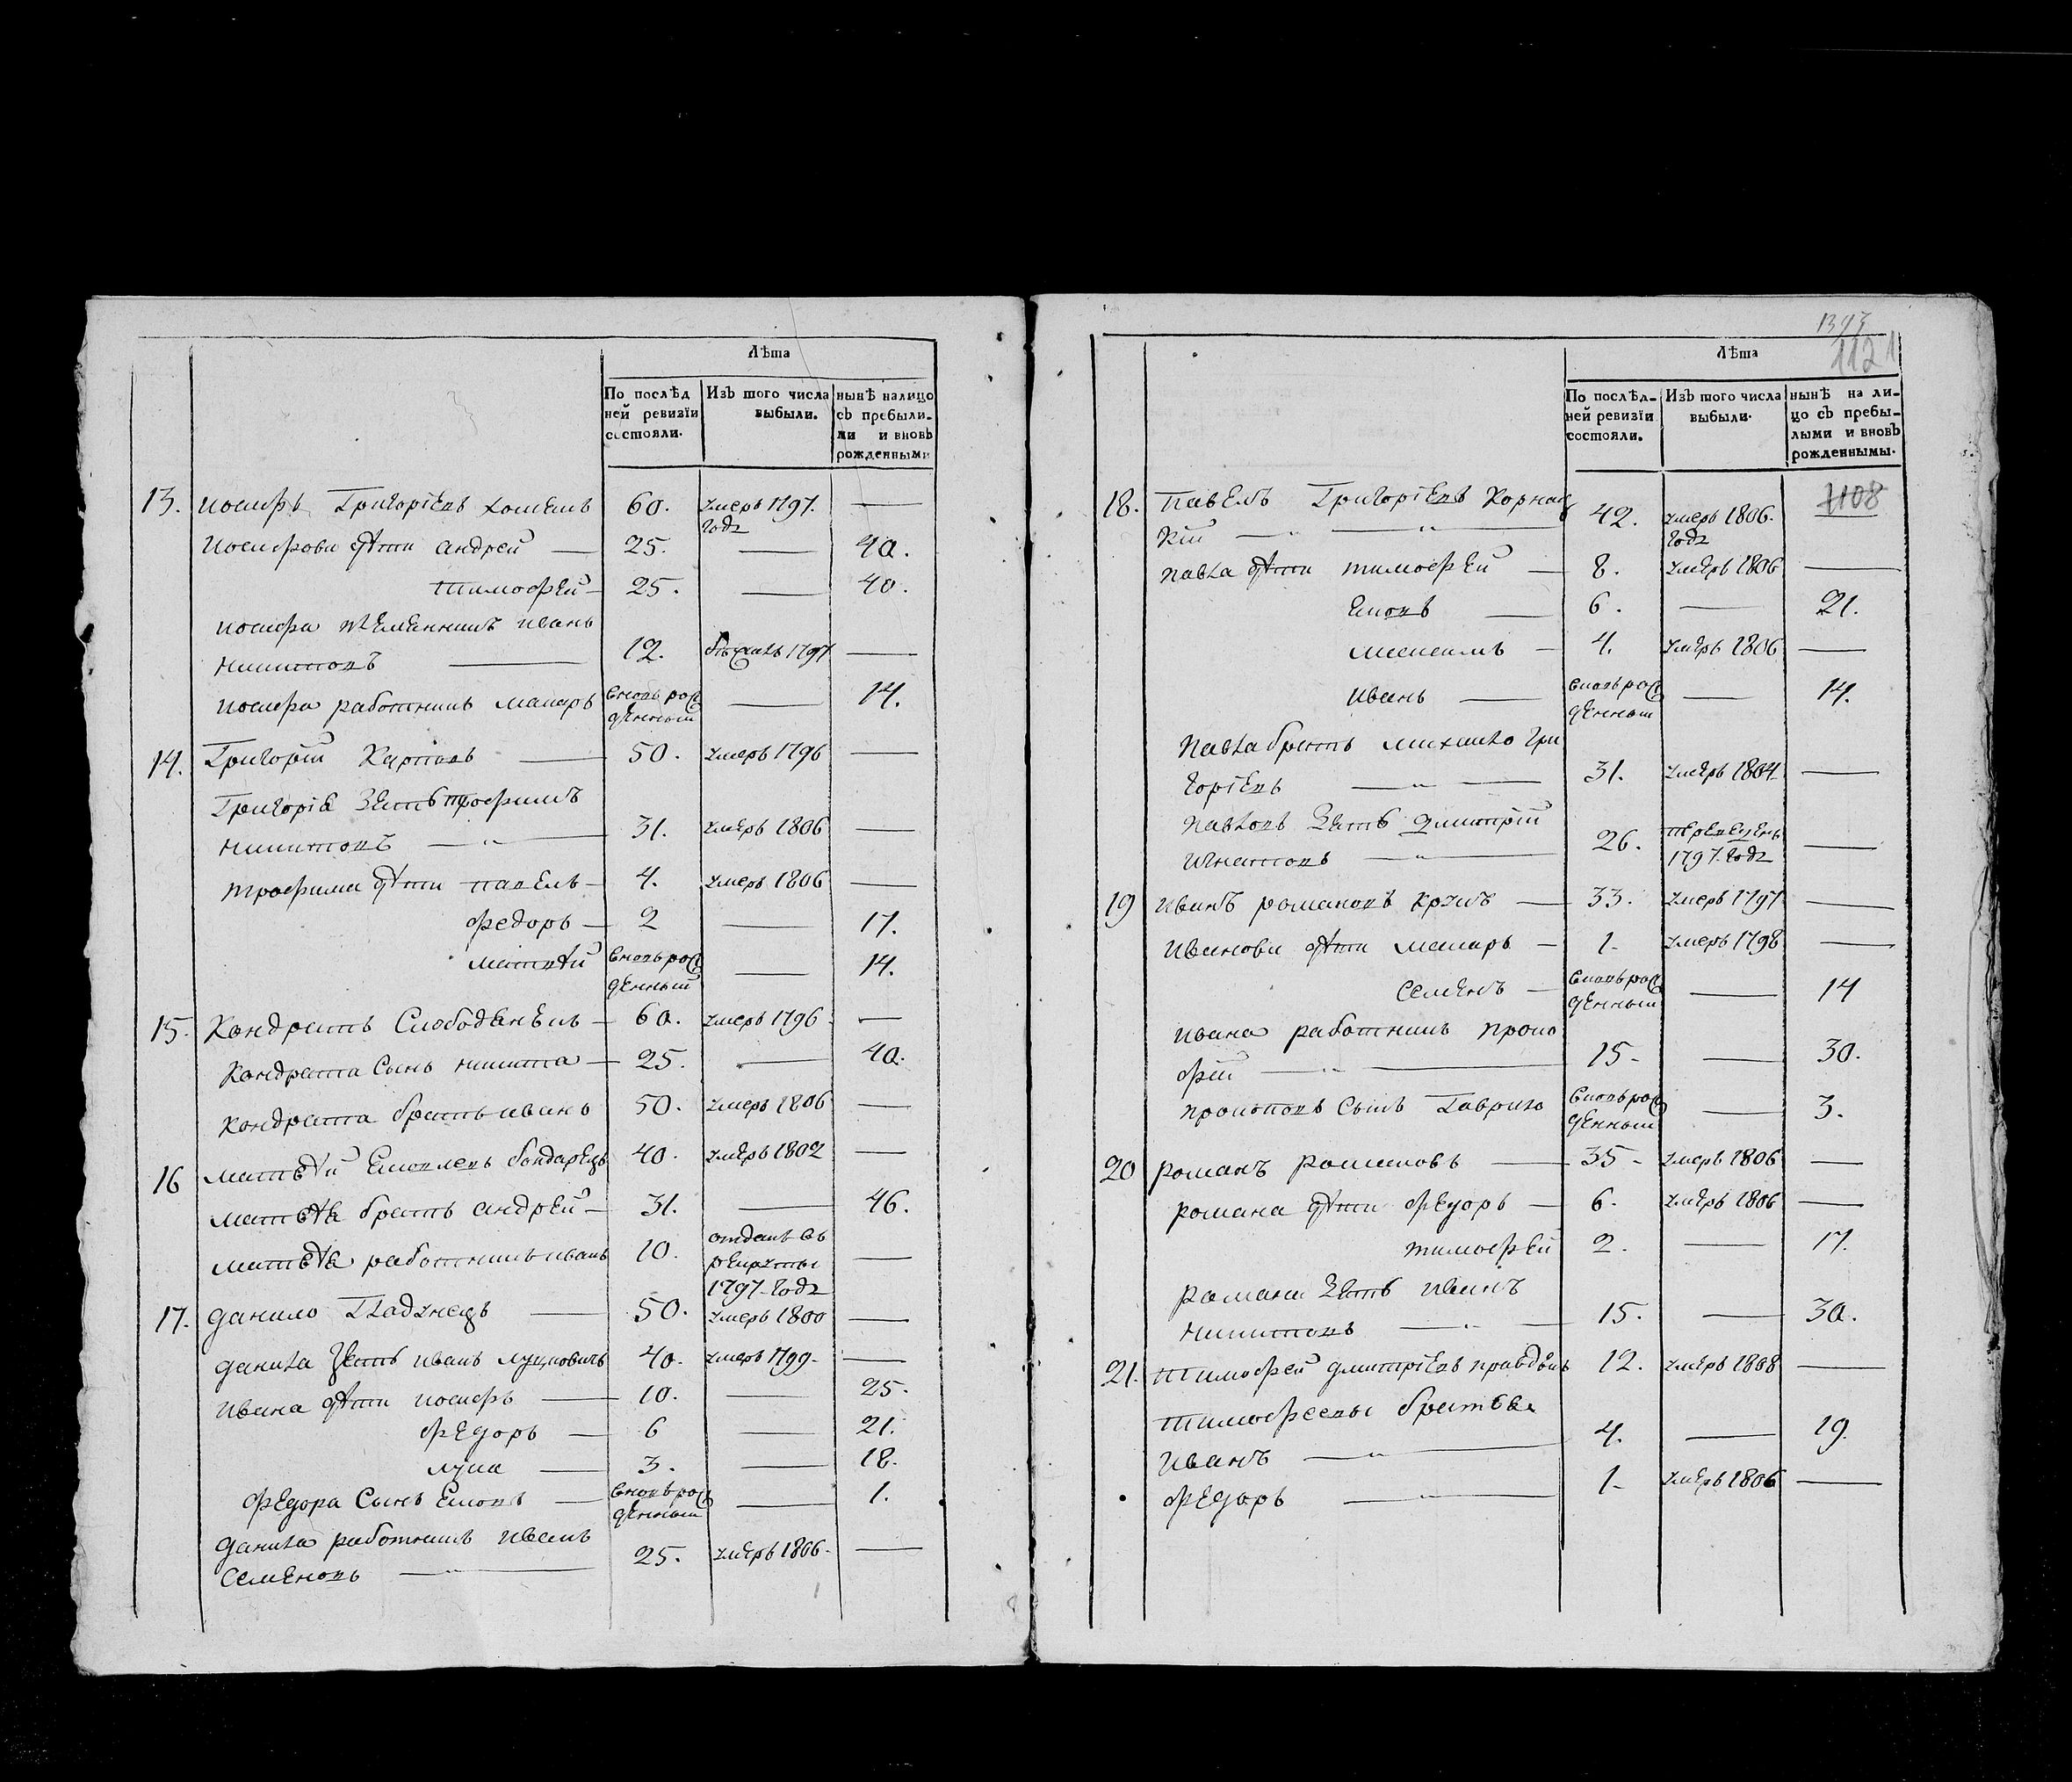 Лѣта
По послѣд
ней ревизїи
состояли.
Изъ того числа
выбыли.
нынѣ налицо
съ прибыли-
ми и вновь
рожденными
13. иосифъ Григорїевъ 60. умеръ 1797. —
годѹ
иосифови дѣти андрей — 25. — 40.
тимофей — 25. — 40.
иосифа племенникъ иванъ
никитовъ — 12. 1797 —
иосифа работникъ макаръ вновь рож — 14.
денный
14. Григорїй Карповъ — 50. умеръ 1796 —
Григорїя зять трофимъ
никитовъ — 31. умеръ 1806 —
трофима дѣти павелъ — 4. умеръ 1806 —
федоръ — 2 — 17.
матвѣй вновь рож — 14.
денный
15. Кондратъ — 60. умеръ 1796 —
Кондрата сынъ никита — 25. — 40.
Кондрата братъ иванъ 50. умеръ 1806 —
16 матвѣй бондарецъ 40. умеръ 1802 —
матвѣя братъ андрей — 31. — 46.
матвѣя работникъ иванъ 10. отданъ въ —
рекруты
1797 годѹ
17. данило — 50. умеръ 1800 —
данила зять иванъ 40. умеръ 1799. —
ивана дѣти иосифъ — 10. — 25.
федоръ — 6 — 21.
лука — 3. — 18.
федора сынъ Емовъ — вновь рож — 1.
денный
данила работникъ иванъ
семеновъ — 25. умеръ 1806. —
1393
112
Лѣта
По послѣд-
ней ревизїи
состояли.
Изъ того числа
выбыли.
нынѣ на ли-
цо съ пребы-
лыми и вновь
рожденнымы.
1108
18. павелъ Григорїевъ Корнац
кїй — 42. умеръ 1806.
годѹ
павла дѣти тимофей — 8. умеръ 1806 —
— 6. — 21.
максимъ — 4. умеръ 1806 —
иванъ — вновь рож — 14.
денный
павла братъ михайло гри
горїевъ — 31. умеръ 1804 —
павловъ зять дмитрїй
игнатовъ — 26. переведенъ —
1797. годѹ
19 иванъ романовъ — 33. умеръ 1797 —
иванови дѣти макаръ — 1. умеръ 1798 —
семенъ — вновь рож — 14
денный
ивана работникъ проко
фїй — 15 — 30.
сынъ Гаврило вновь рож — 3.
денный
20 романъ романовъ — 35 умеръ 1806 —
романа дѣти федоръ — 6. умеръ 1806 —
тимофей 2. — 17.
романа зять иванъ
никитовъ — 15. — 30.
21. тимофей дмитрїевъ 12. умеръ 1808 —
тимофеевы братья
иванъ — 4. — 19.
федоръ — 1. умеръ 1806 —